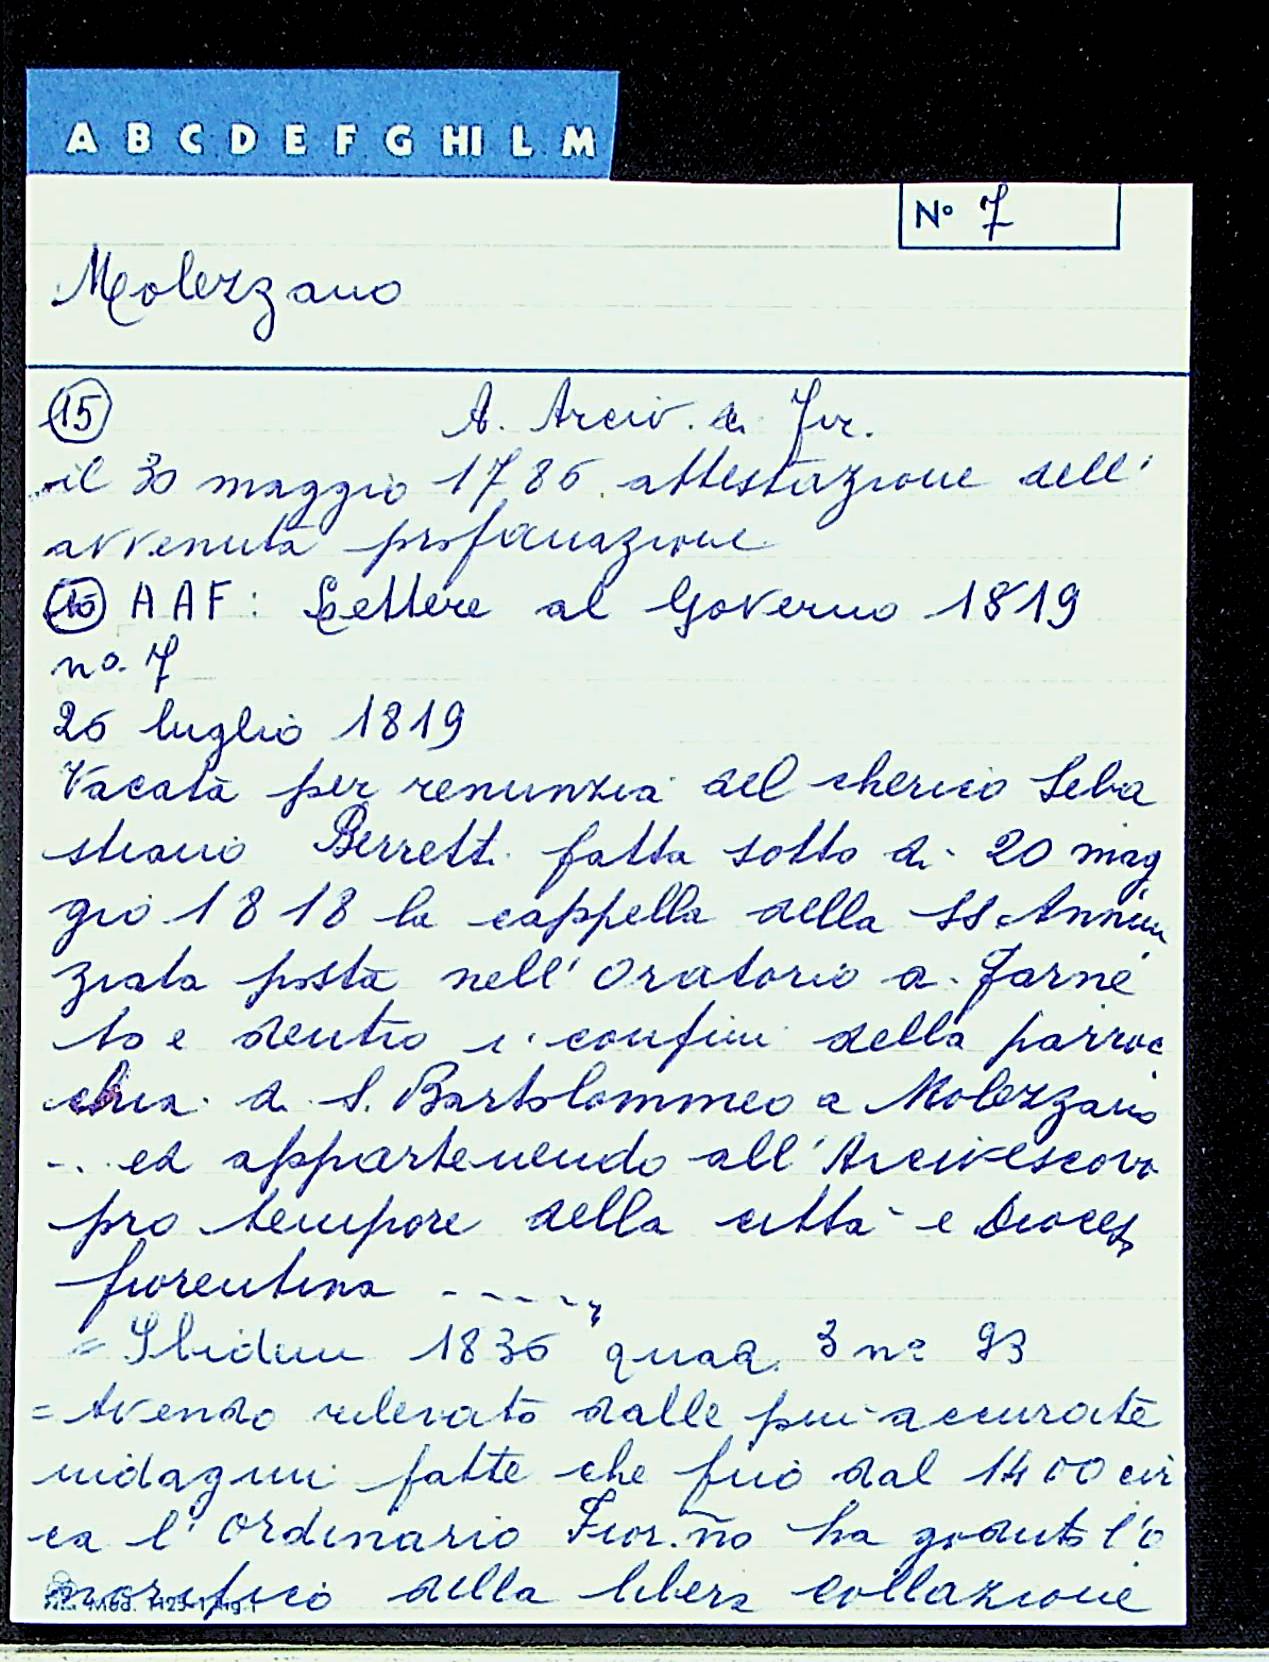 A B C D E F G HI L M
N° 7
Molezzano
15 A. Arciv. di Fir.
il 30 maggio 1786 attestazione dell'
avvenuta profanazione
16 AAF: Lettere al Governo 1819
n°. 7
26 luglio 1819
Vacata per renunzia del cherico Seba
stiano Berretti fatta sotto di 20 mag
gio 1818 la cappella della SS. Annun
ziata posta nell'Oratorio a Farne
to e dentro i confini della parroc
chia di S. Bartolommeo a Molezzano
... ed appartenendo all'Arcivescovo
pro tempore della città e Diocesi
fiorentina -----
= Ibidem 1836 quad. 3 n° 93
= Avendo rilevato dalle più accurate
indagini fatte che fino dal 1400 cir
ca l'ordinario Fior.no ha goduto l'o
norifico della libera collazione